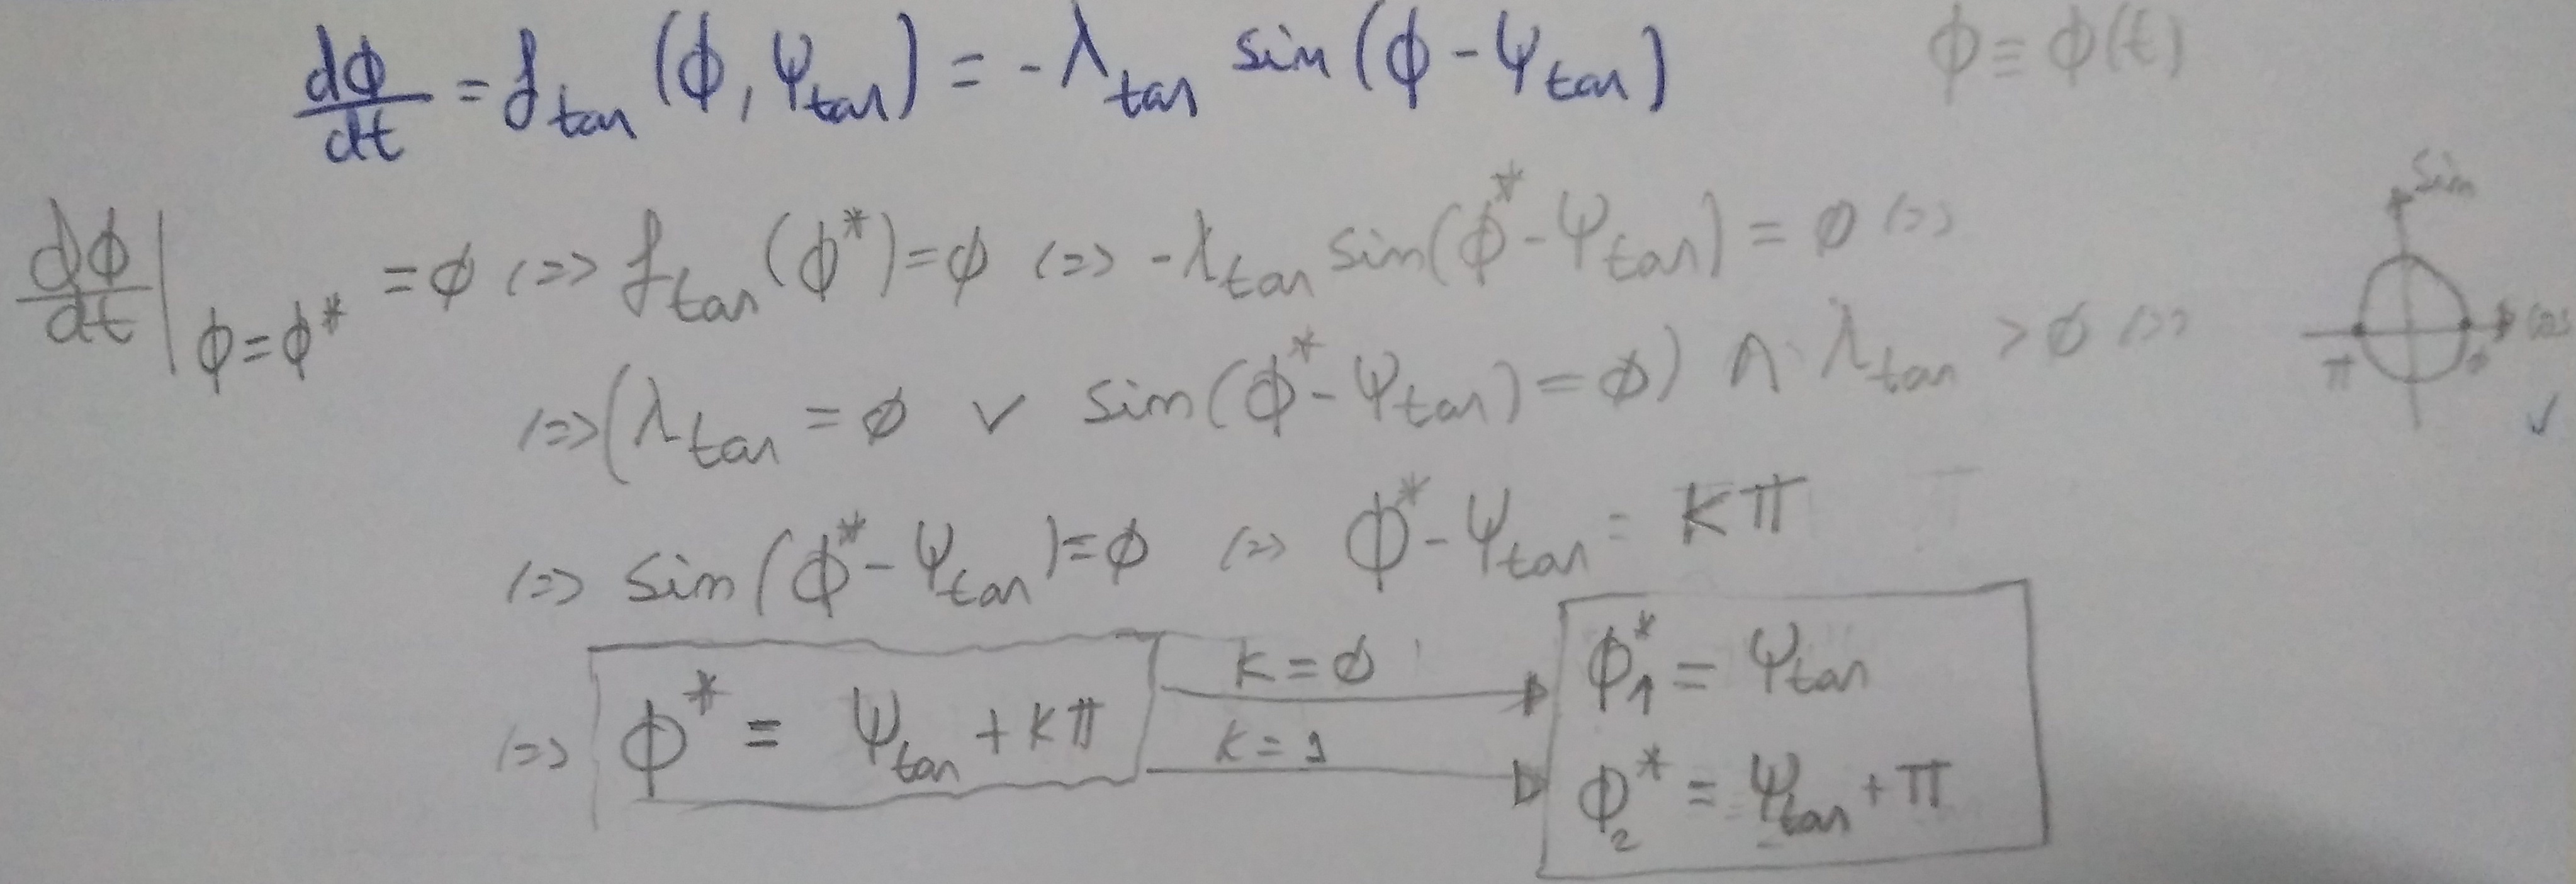 dϕ/dt = f_tan (ϕ, ψ_tan) = -λ_tan sin(ϕ - ψ_tan) ϕ ≡ ϕ(t)
dϕ/dt |_ϕ=ϕ* = ∅ <=> f_tan (ϕ*) = ∅ <=> -λ_tan sin(ϕ* - ψ_tan) = ∅ <=>
<=> (λ_tan = ∅ ∨ sin(ϕ* - ψ_tan) = ∅) ∧ λ_tan > ∅ <=>
<=> sin(ϕ* - ψ_tan) = ∅ <=> ϕ* - ψ_tan = kπ
<=> ϕ* = ψ_tan + kπ
k = ∅
k = 1
ϕ*_1 = ψ_tan
ϕ*_2 = ψ_tan + π
sin
cos
π